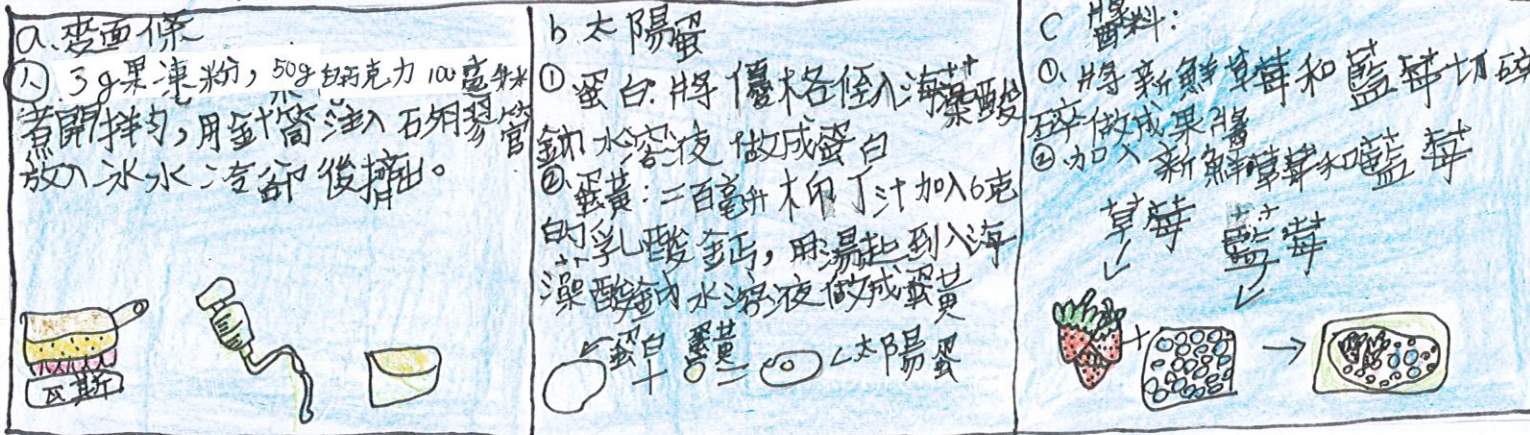 a.麥面條
① 3g果凍粉，50g白巧克力 100毫升水
煮開拌均，用針筒注入石夕膠管
放入冰水冷卻後擠出。
瓦斯
b 太陽蛋
① 蛋白:將優格徑入海藻酸
鈉水容液做成蛋白
②.蛋黃:二百毫升柳丁汁加入6克
的乳酸鈣，用湯起到入海
藻酸鈉水溶液做成蛋黃
蛋白 蛋黃
+ = 太陽蛋
C 醬料:
①.將新鮮草莓和藍莓切碎
碎做成果醬
②.加入新鮮草莓和藍莓
草莓
藍莓
+